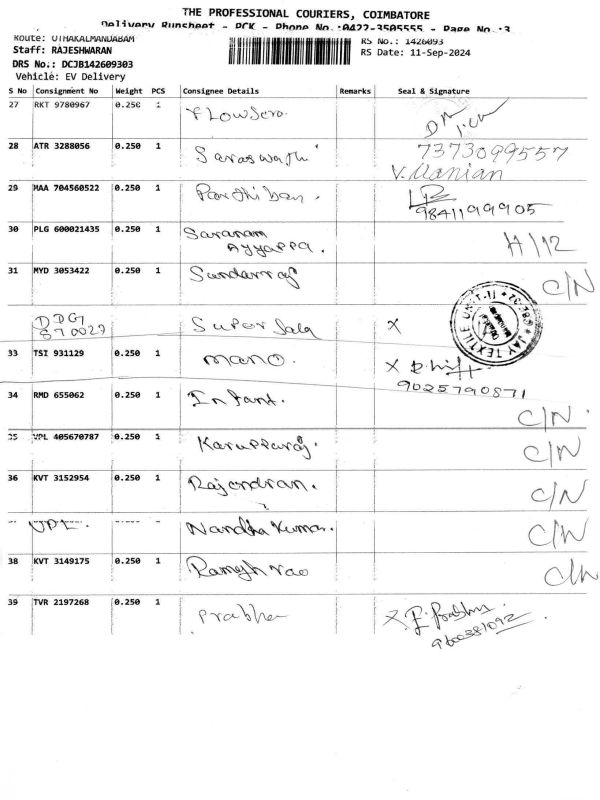 THE PROFESSIONAL COURIERS, COIMBATORE
Delivery Runsheet - PCK - Phone No.:0422-3505555 - Page No.:3
Route: OTHAKALMANDABAM
RS No.: 1426093
Staff: RAJESHWARAN
RS Date: 11-Sep-2024
DRS No.: DCJB142609303
Vehicle: EV Delivery
S No Consignment No Weight PCS Consignee Details Remarks Seal & Signature
27 RKT 9780967 0.250 1 Flowserv
28 ATR 3288056 0.250 1 Saraswathi 7373099557
V. Manian
29 MAA 704560522 0.250 1 Parthiban.
9841199905
30 PLG 600021435 0.250 1 Saranam
Ayyappa. H/12
31 MYD 3053422 0.250 1 Sundarraj C/N
DDG
870029 Super Sala X JAY TEXTILE UNIT-II
33 TSI 931129 0.250 1 mano. X
9025790871
34 RMD 655062 0.250 1 Infant. C/N.
35 VPL 405670787 0.250 1 Karuppuraj. C/N
36 KVT 3152954 0.250 1 Rajendran. C/N
VPL. Nandha Kumar. C/N
38 KVT 3149175 0.250 1 Ramesh rao C/N
39 TVR 2197268 0.250 1 Prabhu X P. Prabhu
9600381092